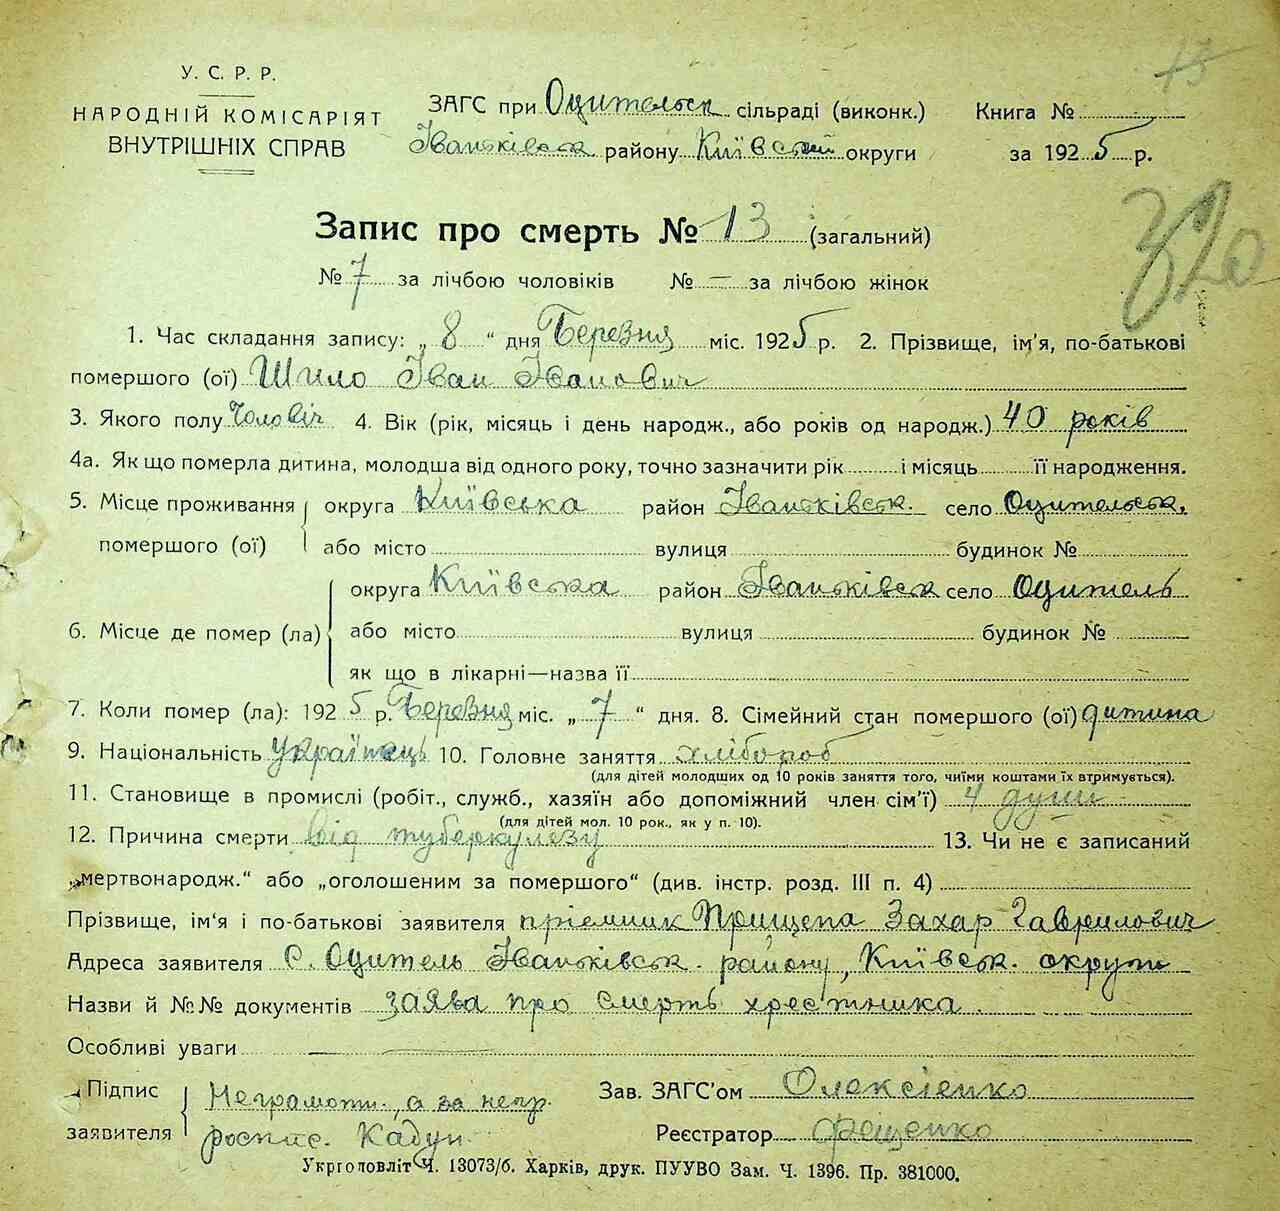 13
У. С. Р. Р.
НАРОДНІЙ КОМІСАРІЯТ
ВНУТРІШНІХ СПРАВ
ЗАГС при Оцительск сільраді (виконк.)
Іваньківськ району Київський округи
Книга №
за 1925 р.
320
Запис про смерть № 13 (загальний)
№ 7 за лічбою чоловіків № — за лічбою жінок
1. Час складання запису: „ 8 “ дня Березня міс. 1925 р. 2. Прізвище, ім'я, по-батькові
помершого (ої) Шило Іван Іванович
3. Якого полу Чоловіч 4. Вік (рік, місяць і день народж., або років од народж.) 40 років
4а. Як що померла дитина, молодша від одного року, точно зазначити рік і місяць її народження.
5. Місце проживання округа Київська район Іваньківськ. село Оцительськ.
помершого (ої) або місто вулиця будинок №
округа Київська район Іваньківськ село Оцитель
6. Місце де помер (ла) або місто вулиця будинок №
як що в лікарні—назва її
7. Коли помер (ла): 1925 р. Березня міс. „ 7 “ дня. 8. Сімейний стан помершого (ої) дитина
9. Національність Українець 10. Головне заняття хлібороб
(для дітей молодших од 10 років заняття того, чиїми коштами їх втримується).
11. Становище в промислі (робіт., служб., хазяїн або допоміжний член сім'ї) 4 души
(для дітей мол. 10 рок., як у п. 10).
12. Причина смерти від туберкулезу 13. Чи не є записаний
„мертвонародж.“ або „оголошеним за помершого“ (див. інстр. розд. III п. 4)
Прізвище, ім'я і по-батькові заявителя пріємник Прищепа Захар Гаврилович
Адреса заявителя С. Оцитель Іваньківськ. району, Київськ. округи
Назви й №№ документів заява про смерть хрестника.
Особливі уваги —
Підпис Неграмотн., а за негр.
заявителя роспис. Кадун
Зав. ЗАГС'ом Олексієнко
Реєстратор Фещенко
Укрголовліт Ч. 13073/б. Харків, друк. ПУУВО Зам. Ч. 1396. Пр. 381000.